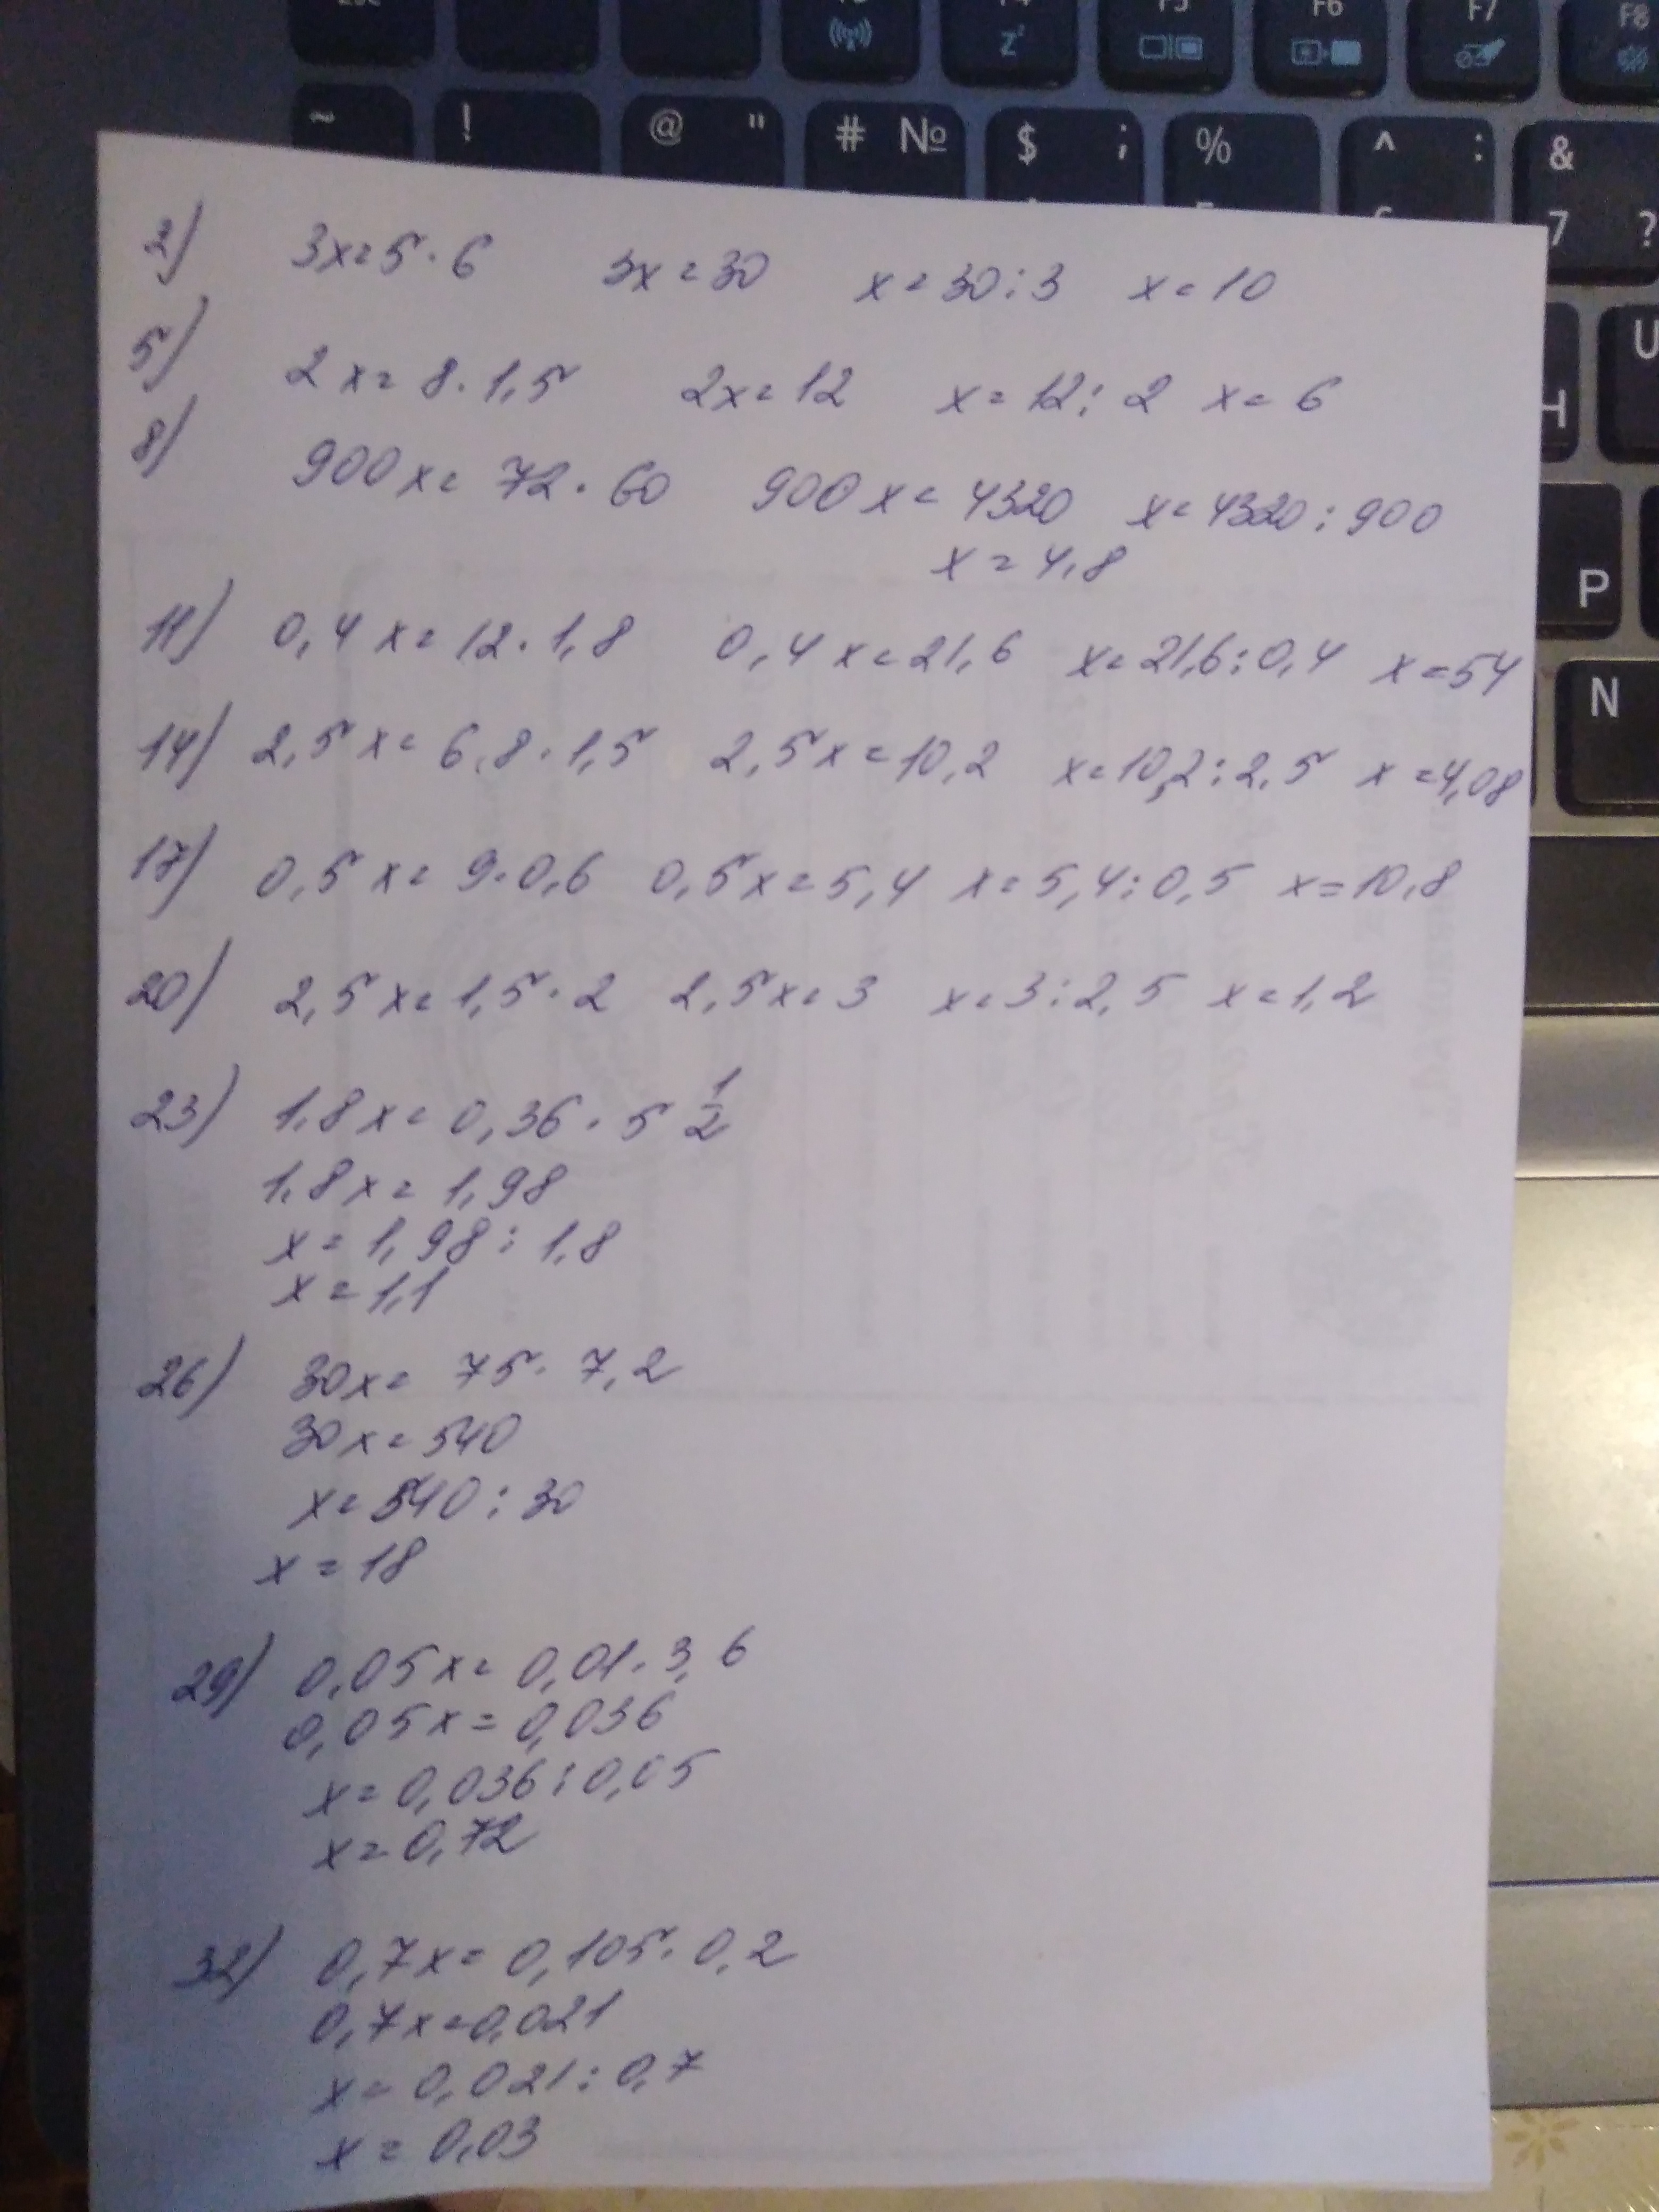 F5 F6 F7 F8
~ ! @ " # № $ ; % ^ : &
7 ?
U
H
P
N
2) 3x=5·6 3x=30 x=30:3 x=10
5) 2x=8·1,5 2x=12 x=12:2 x=6
8) 900x=72·60 900x=4320 x=4320:900
x=4,8
11) 0,4x=12·1,8 0,4x=21,6 x=21,6:0,4 x=54
14) 2,5x=6,8·1,5 2,5x=10,2 x=10,2:2,5 x=4,08
17) 0,5x=9·0,6 0,5x=5,4 x=5,4:0,5 x=10,8
20) 2,5x=1,5·2 2,5x=3 x=3:2,5 x=1,2
23) 1,8x=0,36·5 1/2
1,8x=1,98
x=1,98:1,8
x=1,1
26) 30x=75·7,2
30x=540
x=540:30
x=18
29) 0,05x=0,01·3,6
0,05x=0,036
x=0,036:0,05
x=0,72
32) 0,7x=0,105·0,2
0,7x=0,021
x=0,021:0,7
x=0,03